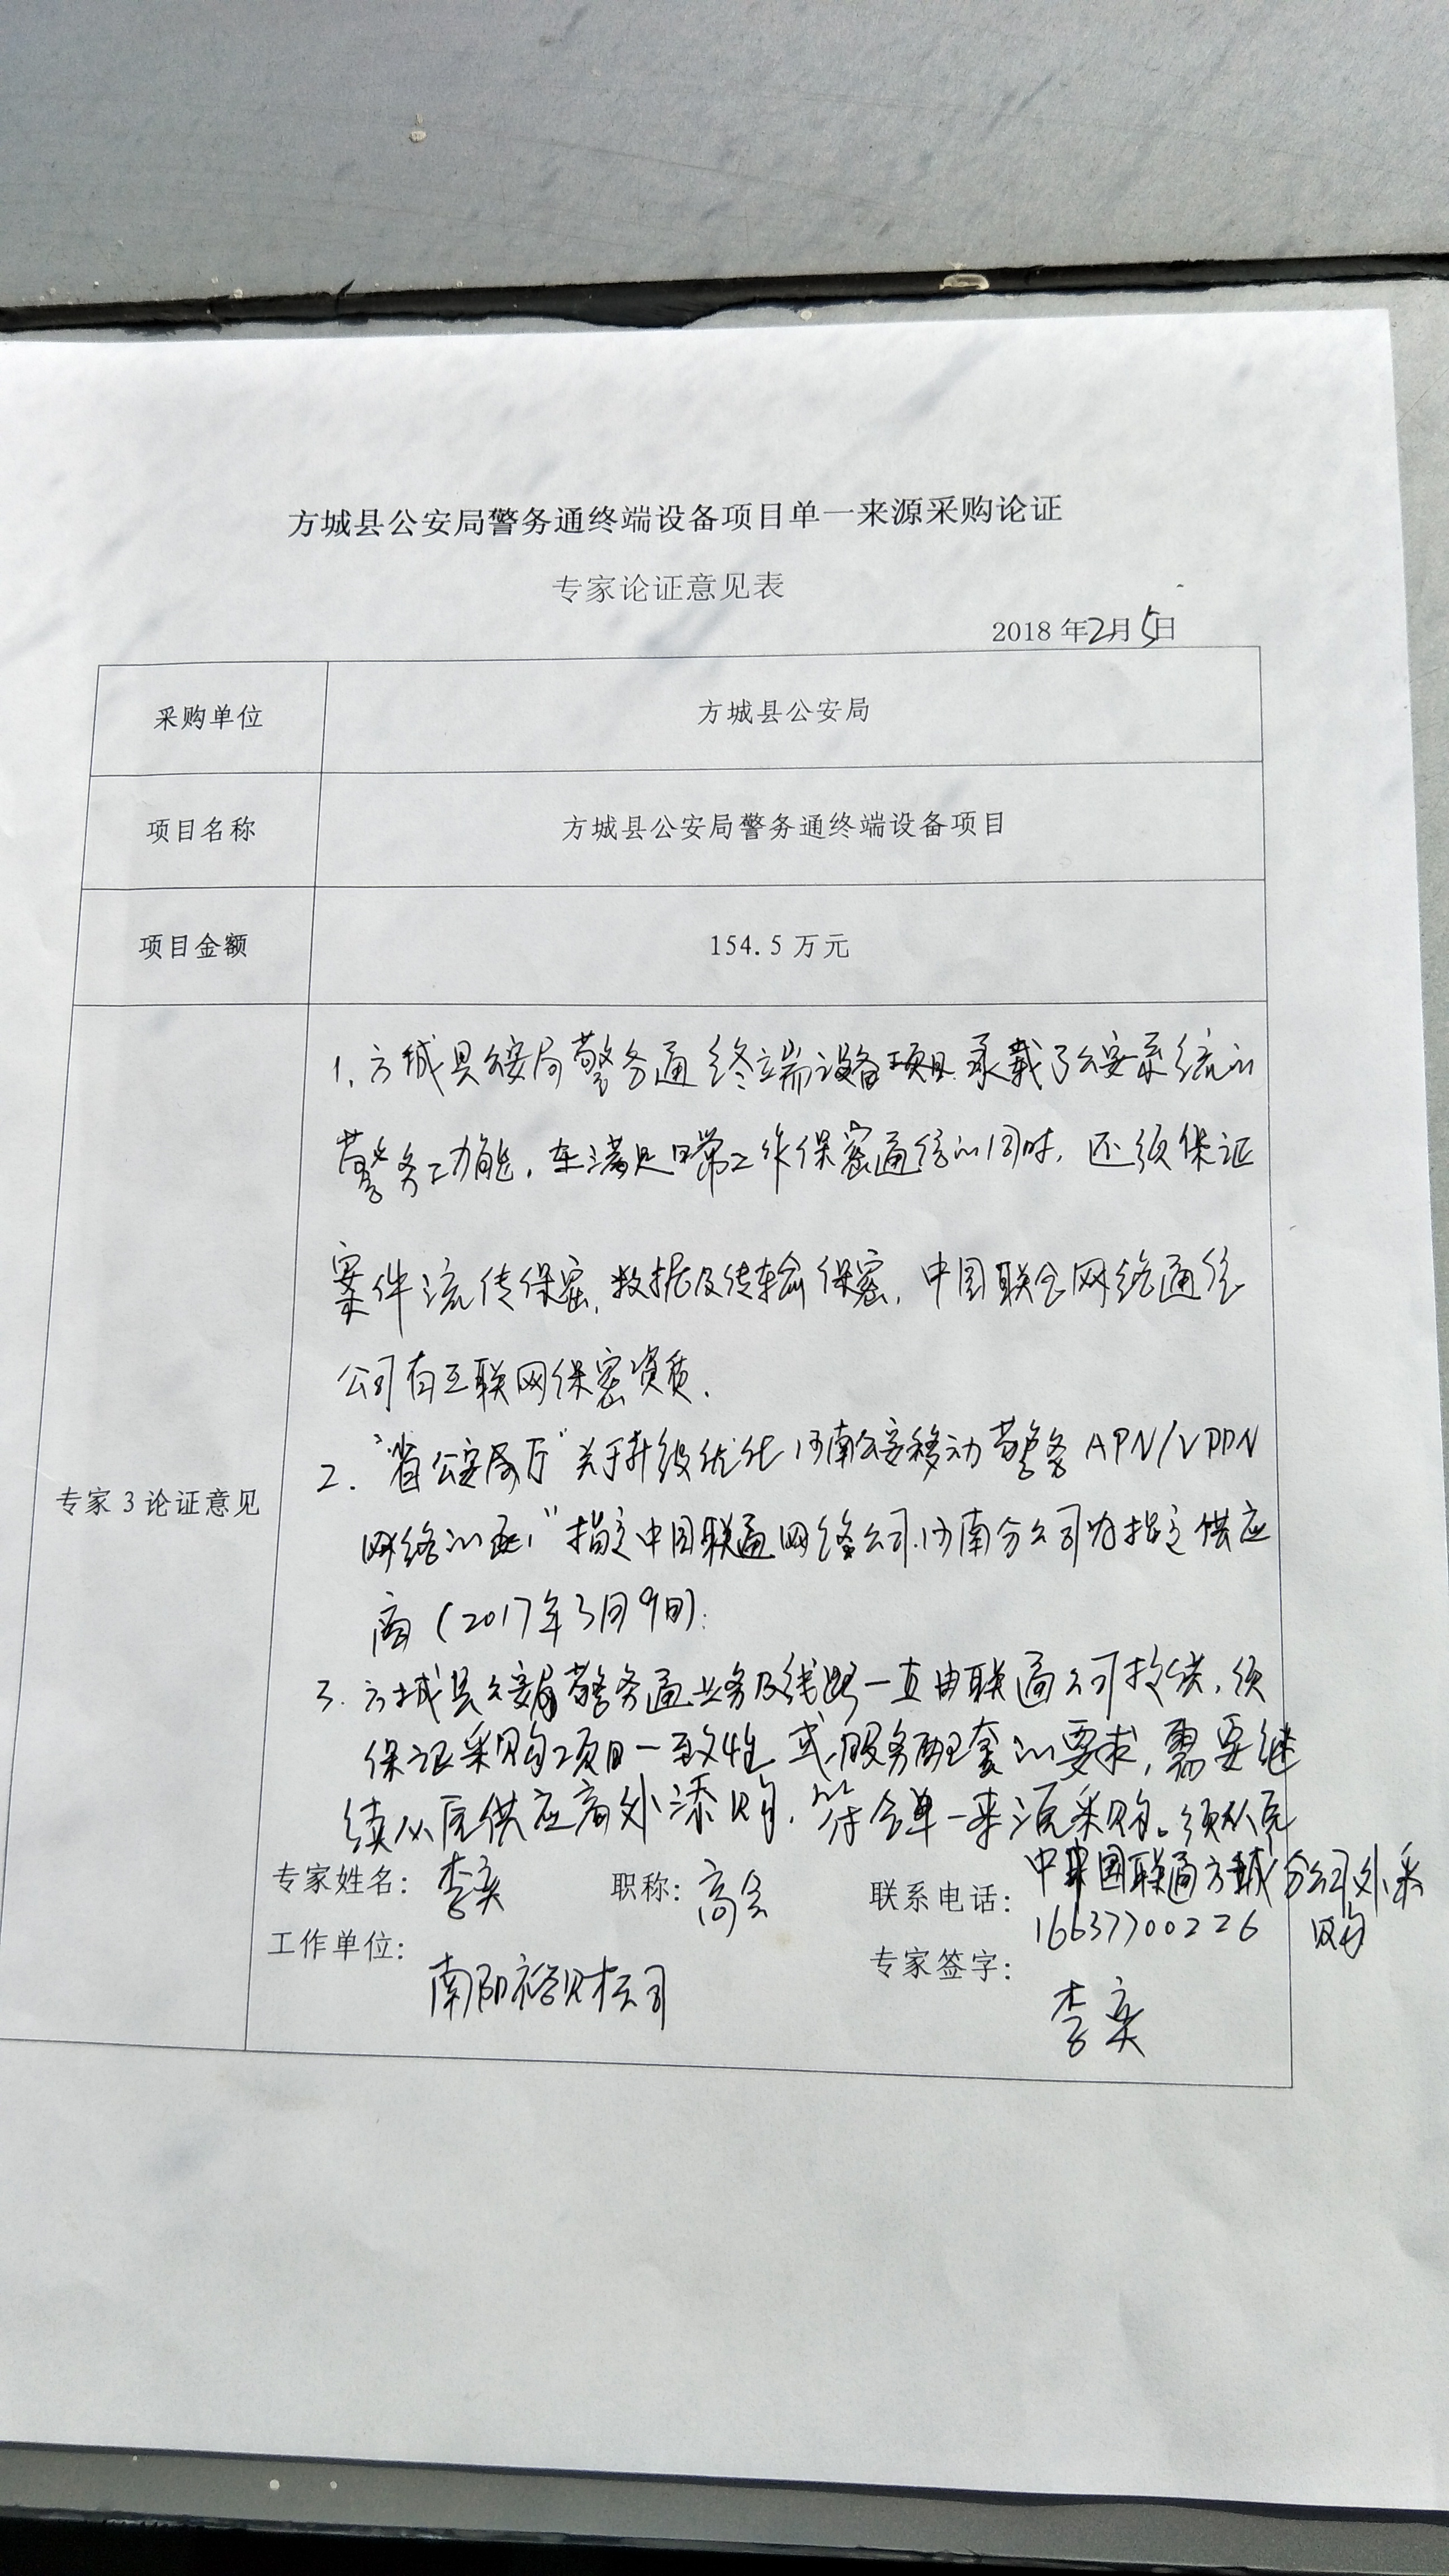 方城县公安局警务通终端设备项目单一来源采购论证
专家论证意见表
2018年2月5日
采购单位 方城县公安局
项目名称 方城县公安局警务通终端设备项目
项目金额 154.5万元
专家3论证意见
1.方城县公安局警务通终端设备项目承载了公安系统的
警务功能,在满足日常工作保密通信的同时,还须保证
案件流传保密,数据及传输保密,中国联合网络通信
公司有互联网保密资质.
2."省公安厅"关于升级优化河南公安移动警务APN/VPDN
网络的"指定中国联通网络公司河南分公司为指定供应
商(2017年3月9日);
3.方城县公安局警务通业务及线路一直由联通公司提供,须
保证采购项目一致性或服务配套的要求,需要继
续从原供应商处添购,符合单一来源采购。须从原
中国联通方城分公司处采
购
专家姓名:李奕 职称:高会 联系电话:16637700226
工作单位:南阳裕财公司 专家签字:李奕